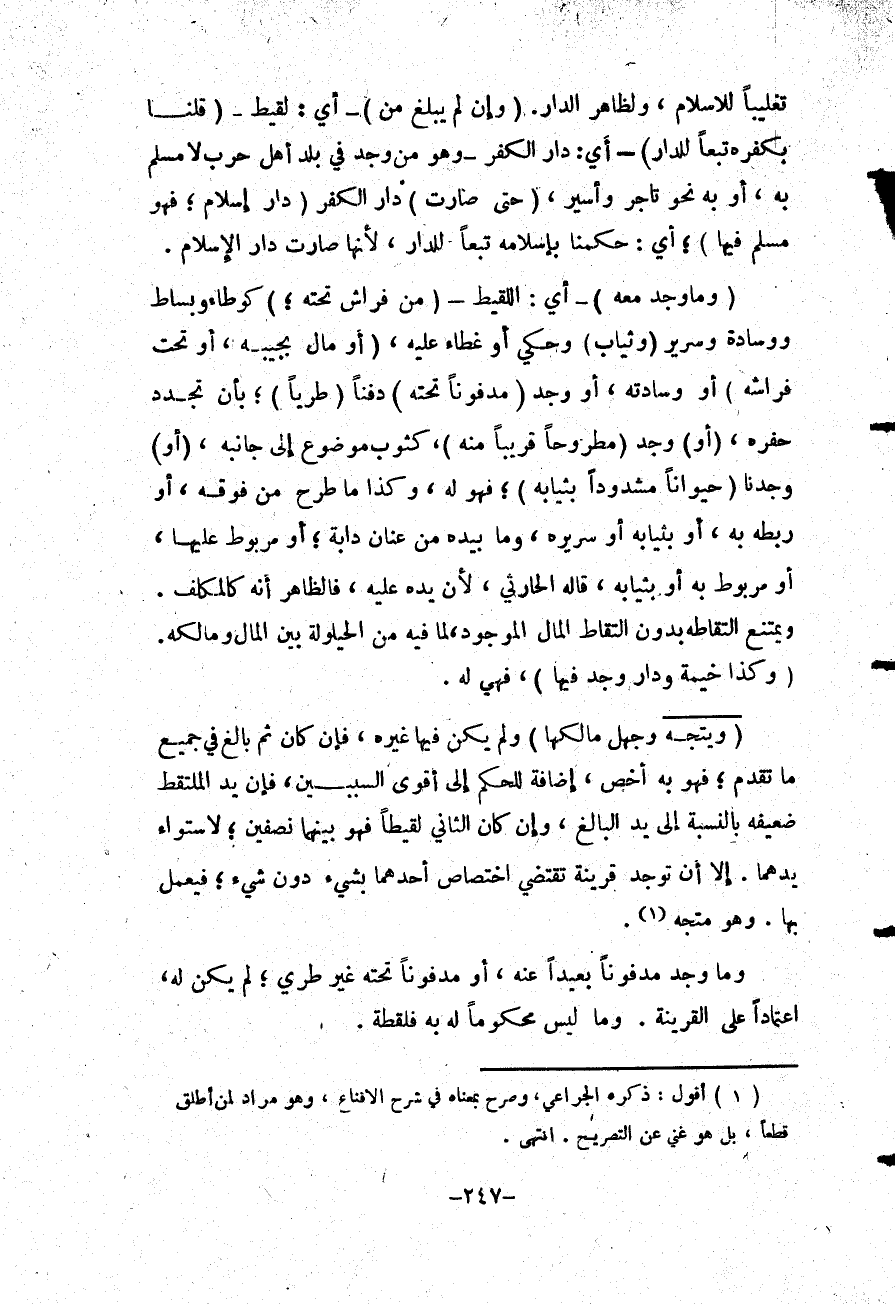 تغليباً للاسلام ، ولظاهر الدار. ( وإن لم يبلغ من ) ــ أي : لقيط ــ ( قلنـــا
بكفره تبعاً للدار) ــ أي: دار الكفر ــ وهو من وجد في بلد أهل حرب لا مسلم
به ، أو به نحو تاجر وأسير ، ( حتى صارت ) دار الكفر ( دار إسلام ؛ فهو
مسلم فيها ) ؛ أي : حكمنا بإسلامه تبعاً للدار ، لأنها صارت دار الإسلام .
( وما وجد معه ) ــ أي : اللقيط ــ ( من فراش تحته ؛ ) كوطاء وبساط
ووسادة وسرير (وثياب) وحكي أو غطاء عليه ، ( أو مال بجيبـه ، أو تحت
فراشه ) أو وسادته ، أو وجد ( مدفوناً تحته ) دفناً ( طرياً ) ؛ بأن تجـدد
حفره ، (أو) وجد (مطروحاً قريباً منه )، كثوب موضوع إلى جانبه ، (أو)
وجدنا ( حيواناً مشدوداً بثيابه ) ؛ فهو له ، وكذا ما طرح من فوقـه ، أو
ربطه به ، أو بثيابه أو سريره ، وما بيده من عنان دابة ؛ أو مربوط عليهـا ،
أو مربوط به أو بثيابه ، قاله الحارثي ، لأن يده عليه ، فالظاهر أنه كالمكلف .
ويمتنع التقاطه بدون التقاط المال الموجود، لما فيه من الحيلولة بين المال ومالكه .
( وكذا خيمة ودار وجد فيها ) ، فهي له .
( ويتجـه وجهل مالكها ) ولم يكن فيها غيره ، فإن كان ثم بالغ في جميع
ما تقدم ؛ فهو به أخص ، إضافة للحكم إلى أقوى السببـــين، فإن يد الملتقط
ضعيفه بالنسبة إلى يد البالغ ، وإن كان الثاني لقيطاً فهو بينهما نصفين ؛ لاستواء
يدهما . إلا أن توجد قرينة تقتضي اختصاص أحدهما بشيء دون شيء ؛ فيعمل
بها . وهو متجه (١) .
وما وجد مدفوناً بعيداً عنه ، أو مدفوناً تحته غير طري ؛ لم يكن له ،
اعتماداً على القرينة . وما ليس محكوماً له به فلقطة .
( ١ ) أقول : ذكره الجراعي، وصرح بمعناه في شرح الاقناع ، وهو مراد لمن أطلق
قطعاً ، بل هو غني عن التصريح . انتهى .
-٢٤٧-